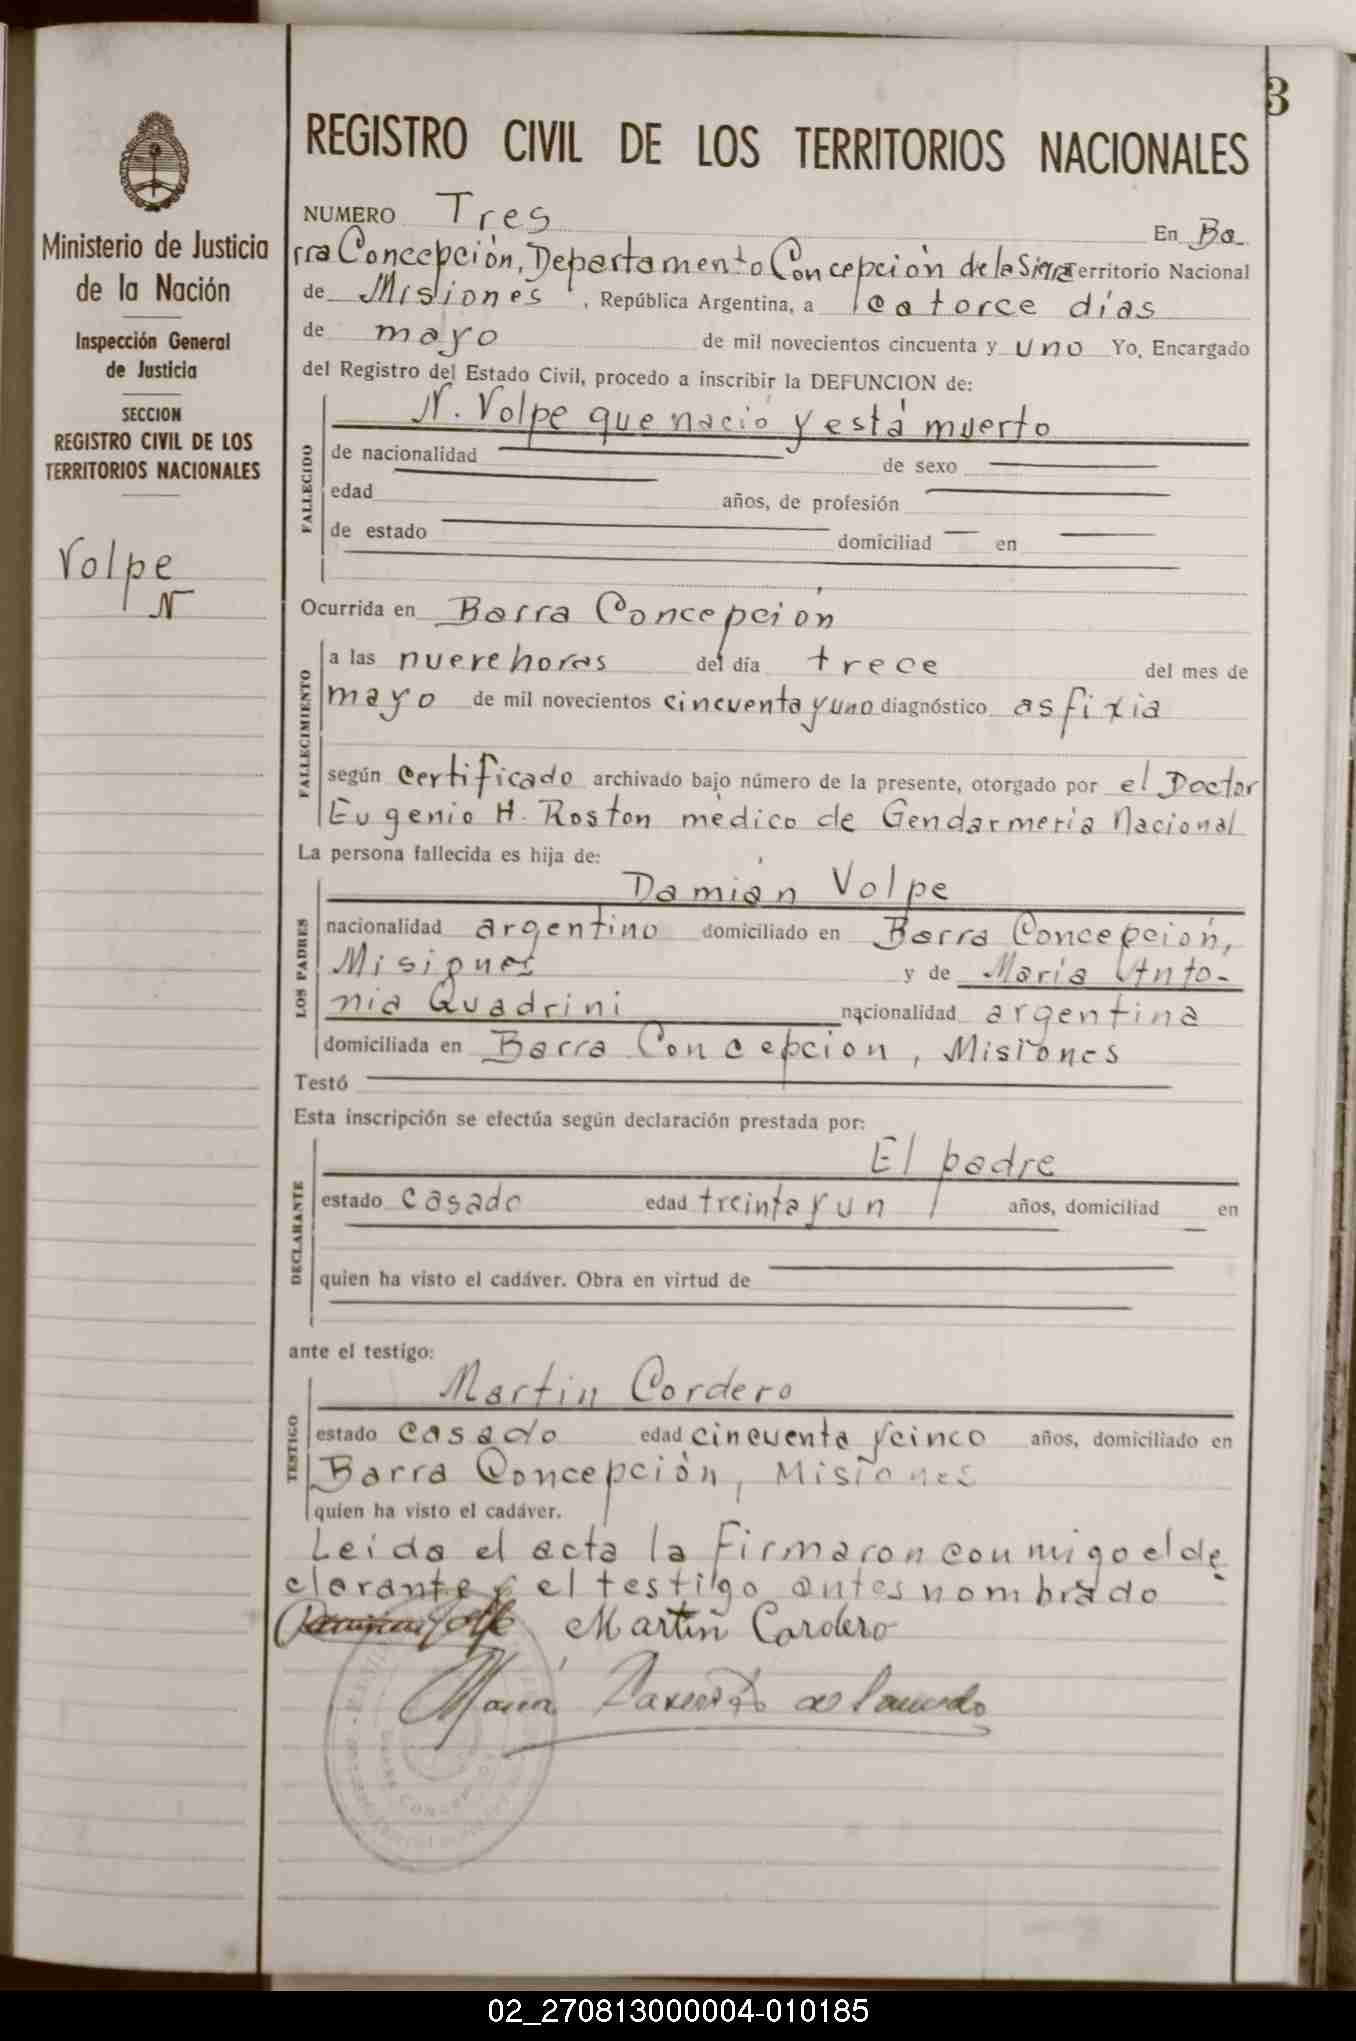 3
Ministerio de Justicia
de la Nación
Inspección General
de Justicia
SECCION
REGISTRO CIVIL DE LOS
TERRITORIOS NACIONALES
Volpe
N
REGISTRO CIVIL DE LOS TERRITORIOS NACIONALES
NUMERO Tres En Ba
rra Concepción, Departamento Concepción de la Sierra Territorio Nacional
de Misiones, República Argentina, a catorce días
de mayo de mil novecientos cincuenta y uno Yo, Encargado
del Registro del Estado Civil, procedo a inscribir la DEFUNCION de:
N. Volpe que nació y está muerto
FALLECIDO
de nacionalidad de sexo
edad años, de profesión
de estado domiciliad en
Ocurrida en Barra Concepción
FALLECIMIENTO
a las nueve horas del día trece del mes de
mayo de mil novecientos cincuenta y uno diagnóstico asfixia
según certificado archivado bajo número de la presente, otorgado por el Doctor
Eugenio H. Roston médico de Gendarmería Nacional
La persona fallecida es hija de:
LOS PADRES
Damián Volpe
nacionalidad argentino domiciliado en Barra Concepción,
Misiones y de María Anto-
nia Quadrini nacionalidad argentina
domiciliada en Barra Concepción, Misiones
Testó
Esta inscripción se efectúa según declaración prestada por:
DECLARANTE
El padre
estado casado edad treinta y un años, domiciliad en
quien ha visto el cadáver. Obra en virtud de
ante el testigo:
TESTIGO
Martin Cordero
estado casado edad cincuenta y cinco años, domiciliado en
Barra Concepción, Misiones
quien ha visto el cadáver.
Leída el acta la firmaron conmigo el de
clarante y el testigo antes nombrado
Martin Cordero
María
02_270813000004-010185